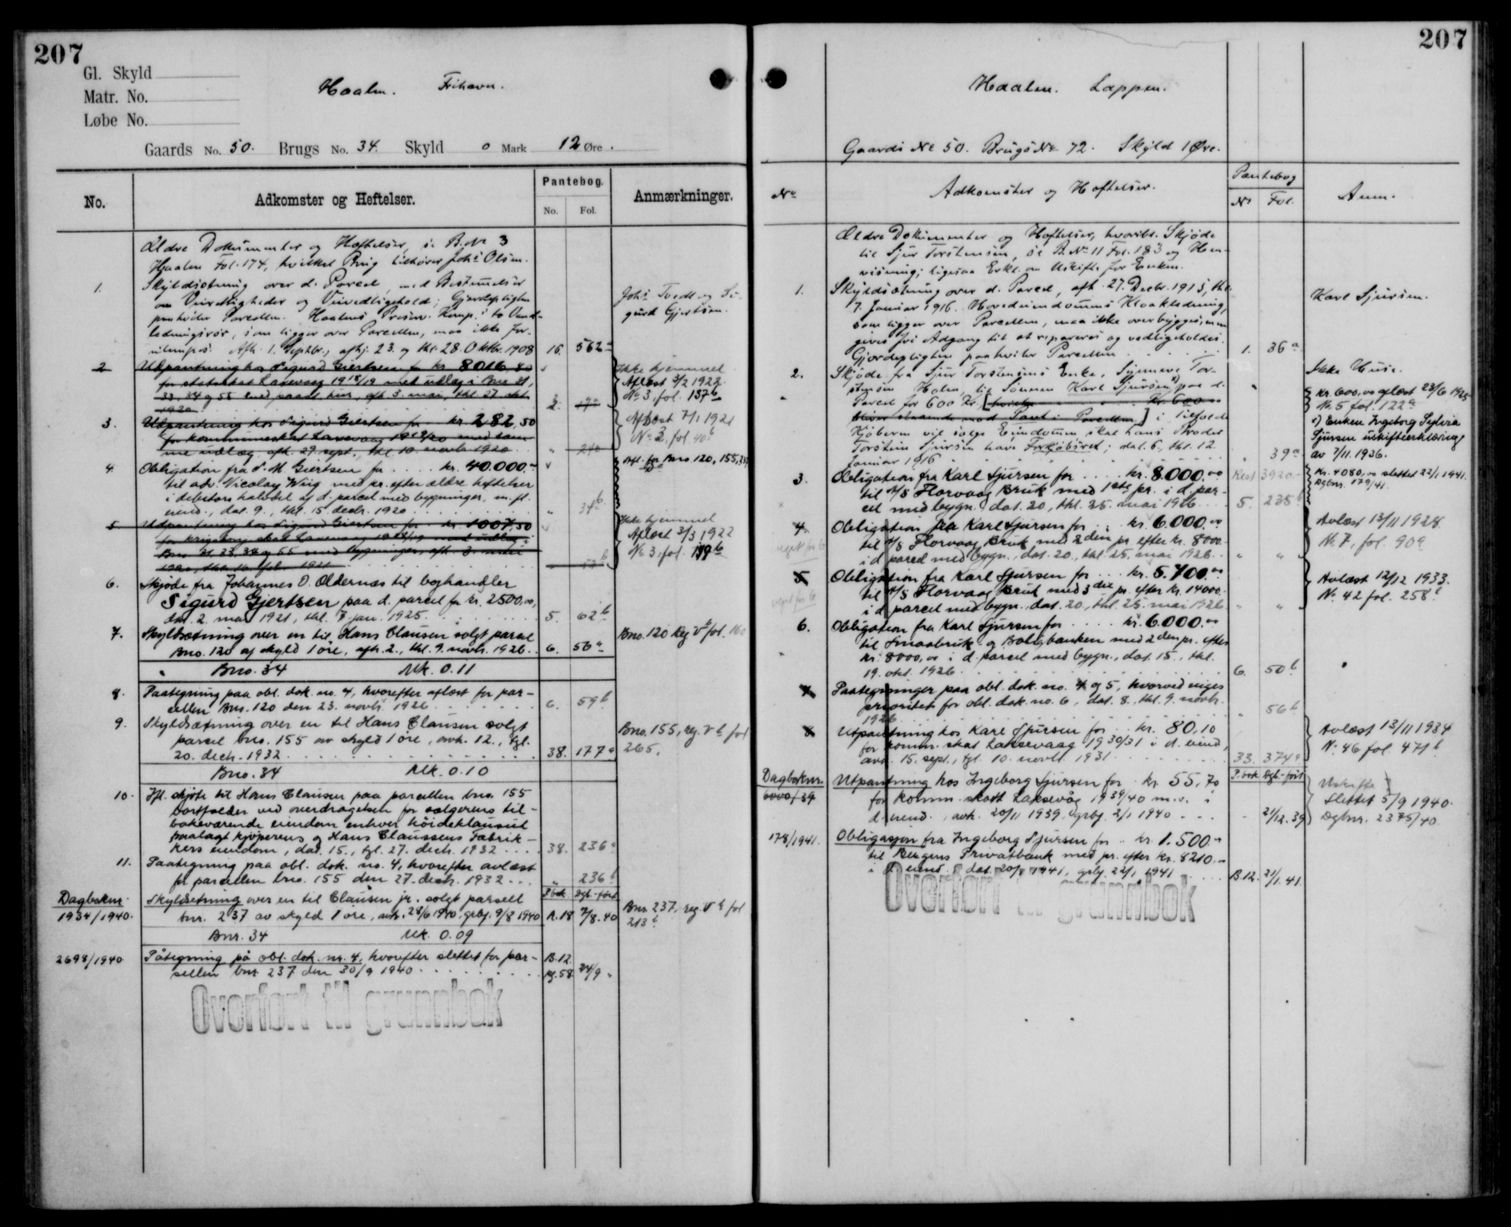 207
Gl. Skyld
Matr. No.
Løbe No.
Haalen. Frihavn.
Gaards No. 50. Brugs No. 34. Skyld 0 Mark 12 Øre.
No. Adkomster og Heftelser. Pantebog. No. Fol. Anmærkninger.
Ældre Dokumenter og Heftelser, se B. No 3
Hjaalen Fol. 174, hvilket Brug tilhører Johs Olsen.
1. Skyldsætning over d. Parcel, med Bestemmelser
om Veirettigheder og Veivedligehold; Gjerdepligten
paahviler Parcellen. Haalens
ledningsrør, som ligger over Parcellen, maa ikke for-
ulempes. Afh. 1. Septbr., afhj. 23. og thl. 28. Oktbr. 1908 16. 562
Johs Tvedt og Si-
gurd Gjertsen.
2. Utpantning hos Sigurd Giertsen for kr. 8016
for statsskat Laksevaag 1918/19 med utlæg i Bno 31,
33, 34 og 55 med paast. hus, aft. 3. mai, thl. 27. okt.
1920 2.
Ikke hjemmel
Aflæst 3/2 1922
No 3, fol. 137b
3. Utpantning hos Sigurd Giertsen for kr. 282,50
for kommuneskat Laksevaag 1919/20 med sam-
me utlæg aft. 27. sept., thl. 10. novb. 1920
Aflæst 7/1 1921
No 2, fol 40b
4. Obligation fra S. M. Giertsen for kr. 40.000.-
til adv. Nicolay Wiig med pr. efter ældre heftelser
i debitors halvdel af d. parcel med bygninger, m. fl.
eiend., dat. 9., thl. 15. decb. 1920 34b
Afl. for Bno 120, 155, 237
5. Utpantning hos Sigurd Giertsen for kr. 1007,50
for krigskonj. skat Laksevaag 1918/19 med utlæg i
Bno 31, 33, 34 og 55 med bygninger, aft. 3. mai
1920, thl. 10. feb. 1921
Ikke hjemmel
Aflæst 3/3 1922
No 3, fol. 149b
6. Skjøde fra Johannes O. Oldernæs til boghandler
Sigurd Gjertsen paa d. parcel for kr. 2500,00,
dat. 2. mai 1921, thl. 7. jan. 1925 5. 62b
7. Skyldsætning over en til Hans Clausen solgt parcel
Bno. 120 af skyld 1 øre, afh. 2., thl. 9. novb. 1926 6. 56a
Bno. 120 Reg Vb fol.
Bno. 34 Mk. 0.11
8. Paategning paa obl. dok. no. 4, hvorefter aflæst for par-
cellen Bno. 120 den 23. novb. 1926 6. 59b
9. Skyldsætning over en til Hans Clausen solgt
parcel bno. 155 av skyld 1 øre, avh. 12., tgl.
20. decb. 1932 38. 177a
Bno. 155, reg. Vb fol
265.
Bno. 34 Mk. 0.10
10. Hfl. skjøte til Hans Clausen paa parcellen bno. 155
bortfolder ved overdragelsen for sælgerens til-
bakeværende eiendom enhver høideklausul
paalagt kjøperens og Hans Claussens Fabrik-
kers eiendom, dat. 15., tgl. 27. decb. 1932 38. 236a
11. Paategning paa obl. dok. no. 4, hvorefter avlæst
for parcellen bno. 155 den 27. decb. 1932 " 236b
Dagboknr. P.bok. Dgb.-ført
1934/1940. Skyldsetning over en til Clausen jr. solgt parsell
bnr. 237 av skyld 1 øre, avh. 24/6 1940, grbg. 9/8 1940 A.18 7/8.40
Bnr. 237. reg Vb fol
213b
Bnr. 34 Mk. 0.09
2698/1940 Påtegning på obl. dok. nr. 4, hvorefter slettet for par- B.12
sellen bnr 237 den 30/9 1940 pg. 58 24/9
Overført til grunnbok
207
Haalen. Lappen.
Gaards No 50. Brugs No 72. Skyld 1 Øre.
No Adkomster og Heftelser. Pantebog No Fol. Anm.
Ældre Dokumenter og Heftelser, hvoribl. Skjøde
til Sjur Torstensen, se B. No 11 Fol. 183 og Hen-
visning; ligesaa Erkl. om Uskifte for Enken.
1. Skyldsætning over d. Parcel, afh. 27. Decbr. 1915, thl.
7. Januar 1916. Hovedeiendommens Kloakledning,
som ligger over Parcellen, maa ikke overbygges, men
gives fri Adgang til at reparerer og vedligeholdes.
Gjerdepligten paahviler Parcellen 1. 36a
Karl Sjursen.
2. Skjøde fra Sjur Torstensens Enke, Synneve Tor-
stensen Halen, til Sønnen Karl Sjursen paa d.
Parcel for 600 Kr. [hvorfor Kr. 600.00
bliver staaende med Pant i Parcellen] i Tilfælde
Kjøberen vil sælge Eiendommen skal hans Broder
Torstein Sjursen have Forkjøbsret; dat. 6., thl. 12.
Januar 1916 " 39a
Ikke Huse.
Kr. 600,00 aflæst 23/6 1925
No 5 fol. 122a
1) Enken Ingeborg Sylvia
Sjursen uskifteerklæring
av 7/11. 1936.
3. Obligation fra Karl Sjursen for kr. 8000.00
til A/S Florvaag Bruk med 1ste pr. i d. par-
cel med bygn., dat. 20., thl. 25. mai 1926 5. 235b
Rest 3920.-
Kr. 4080,00 slettet 22/1 1941.
Dgbnr. 179/41.
4. Obligation fra Karl Sjursen for kr. 6.000.00
til A/S Florvaag Bruk med 2den pr. efter kr. 8000
i d. parcel med bygn., dat. 20., thl. 25. mai 1926 " "
Avlæst 13/11 1928
No 7, fol. 90a
5. Obligation fra Karl Sjursen for kr. 5.700.00
til A/S Florvaag Bruk med 3die pr. efter kr. 14000
i d. parcel med bygn., dat. 20., thl. 25. mai 1926 " "
Avlæst 12/12 1933.
No. 42 fol. 258b
6. Obligation fra Karl Sjursen for kr. 6.000.00
til Smaabruk og Boligbanken med 2den pr. efter
kr. 8000,00 i d. parcel med bygn., dat. 15., thl.
19. okt. 1926 6. 50b
7. Paategninger paa obl. dok. no. 4 og 5, hvorved viges
prioritet for obl. dok. no. 6, dat. 8., thl. 9. novb.
1926 " 56b
8. Utpantning hos Karl Sjursen for kr. 80,10
for komm. skat Laksevaag 1930/31 i d. eiend.,
avh. 15. sept., tgl. 10. novbr. 1931 33. 374a
Avlæst 13/11 1934
No. 46 fol. 471b
Dagboknr. P.bok Dgb.-ført
6000/39 Utpantning hos Ingeborg Sjursen for kr. 55,70
for komm. skatt Laksevåg 1939/40 m.v. i
d. eiend., avh. 20/11 1939. Grbg 2/1 1940 21/12.39
Slettet 5/9 1940.
Dgbnr. 2375/40.
178/1941. Obligasjon fra Ingeborg Sjursen for kr. 1.500.-
til Bergens Privatbank med pr. efter kr. 8210.-
i d. eiend., dat. 20/1 1941, grbg 22/1 1941 B.12. 21/1.41.
Overført til grunnbok